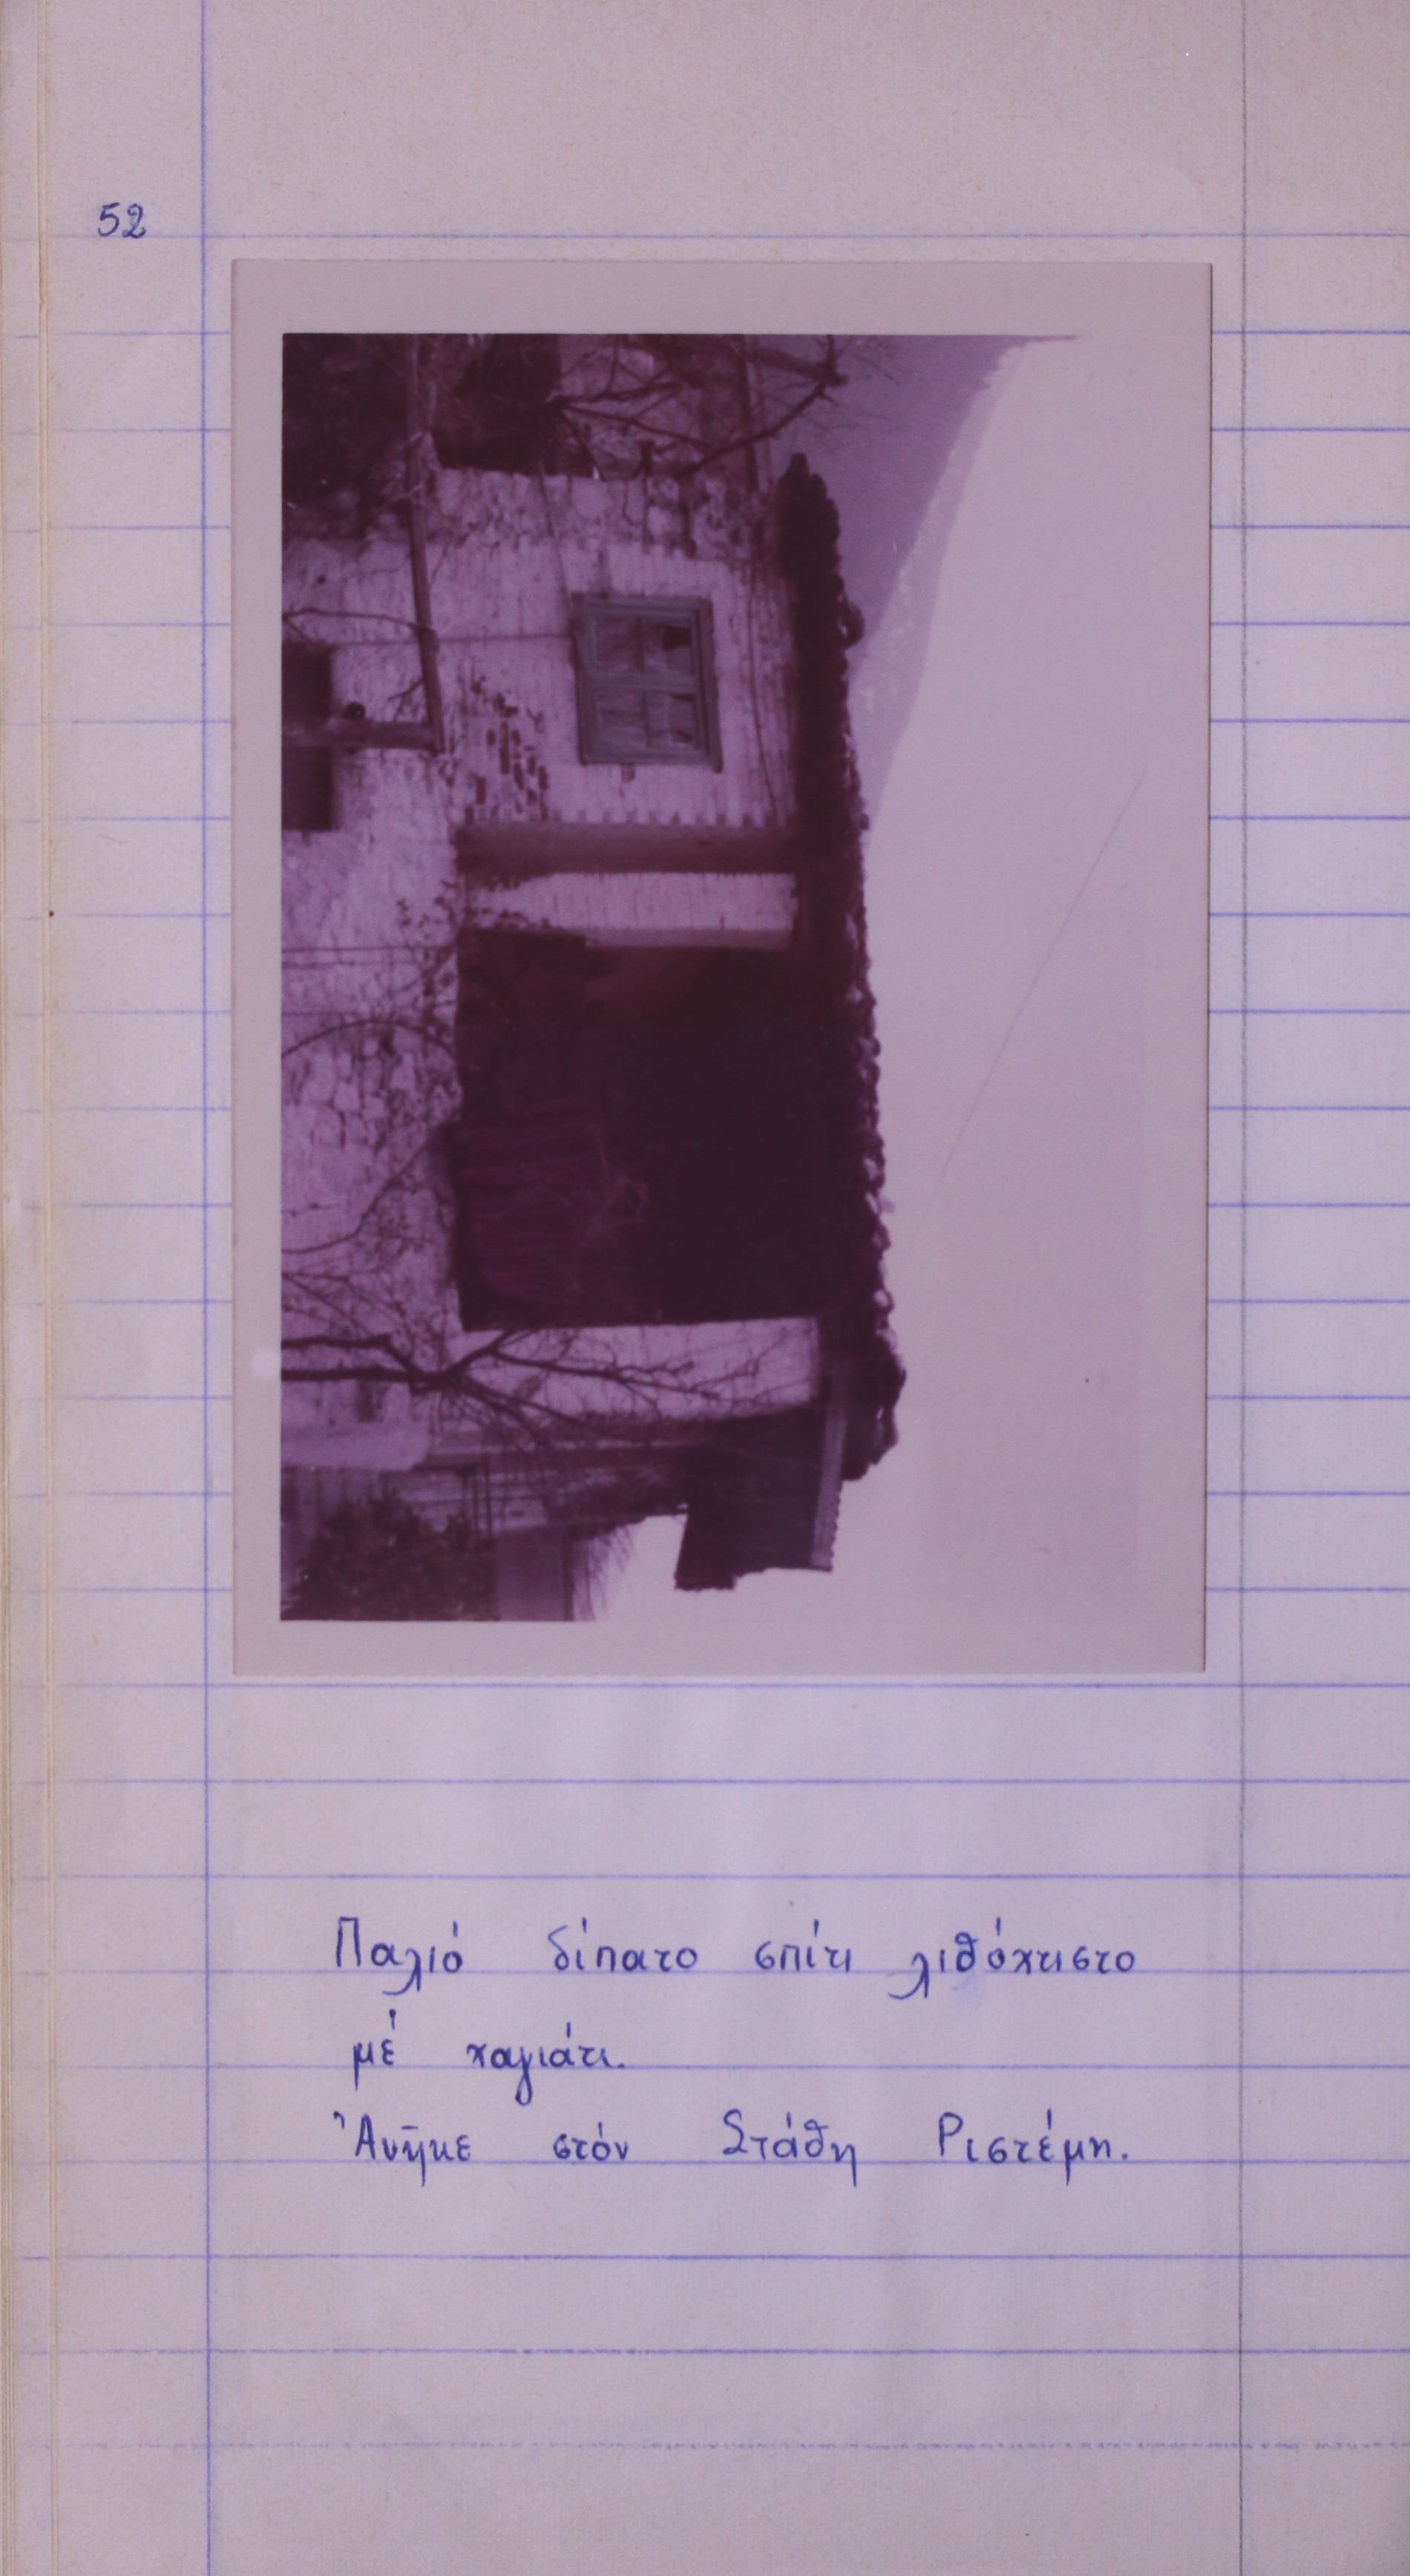 52
Παλιό δίπατο σπίτι λιθόχτιστο
μέ χαγιάτι.
Ἀνῆκε στόν Στάθη Ριστέμη.